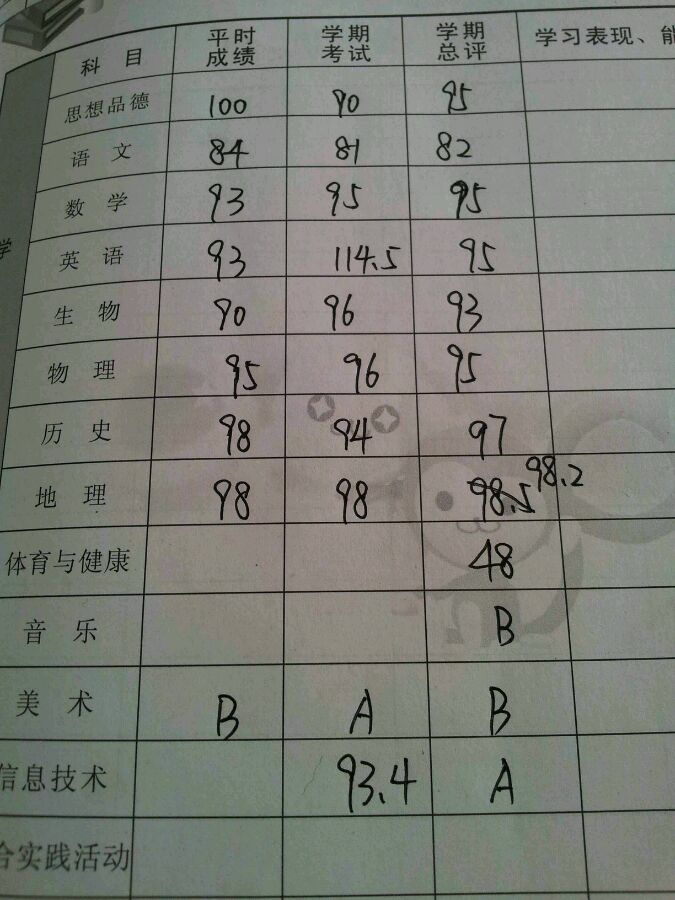 科 目 平时成绩 学期考试 学期总评 学习表现、能
思想品德 100 90 95
语 文 84 81 82
数 学 93 95 95
英 语 93 114.5 95
生 物 90 96 93
物 理 95 96 95
历 史 98 94 97
地 理 98 98 98.5 98.2
体育与健康 48
音 乐 B
美 术 B A B
信息技术 93.4 A
合实践活动
学